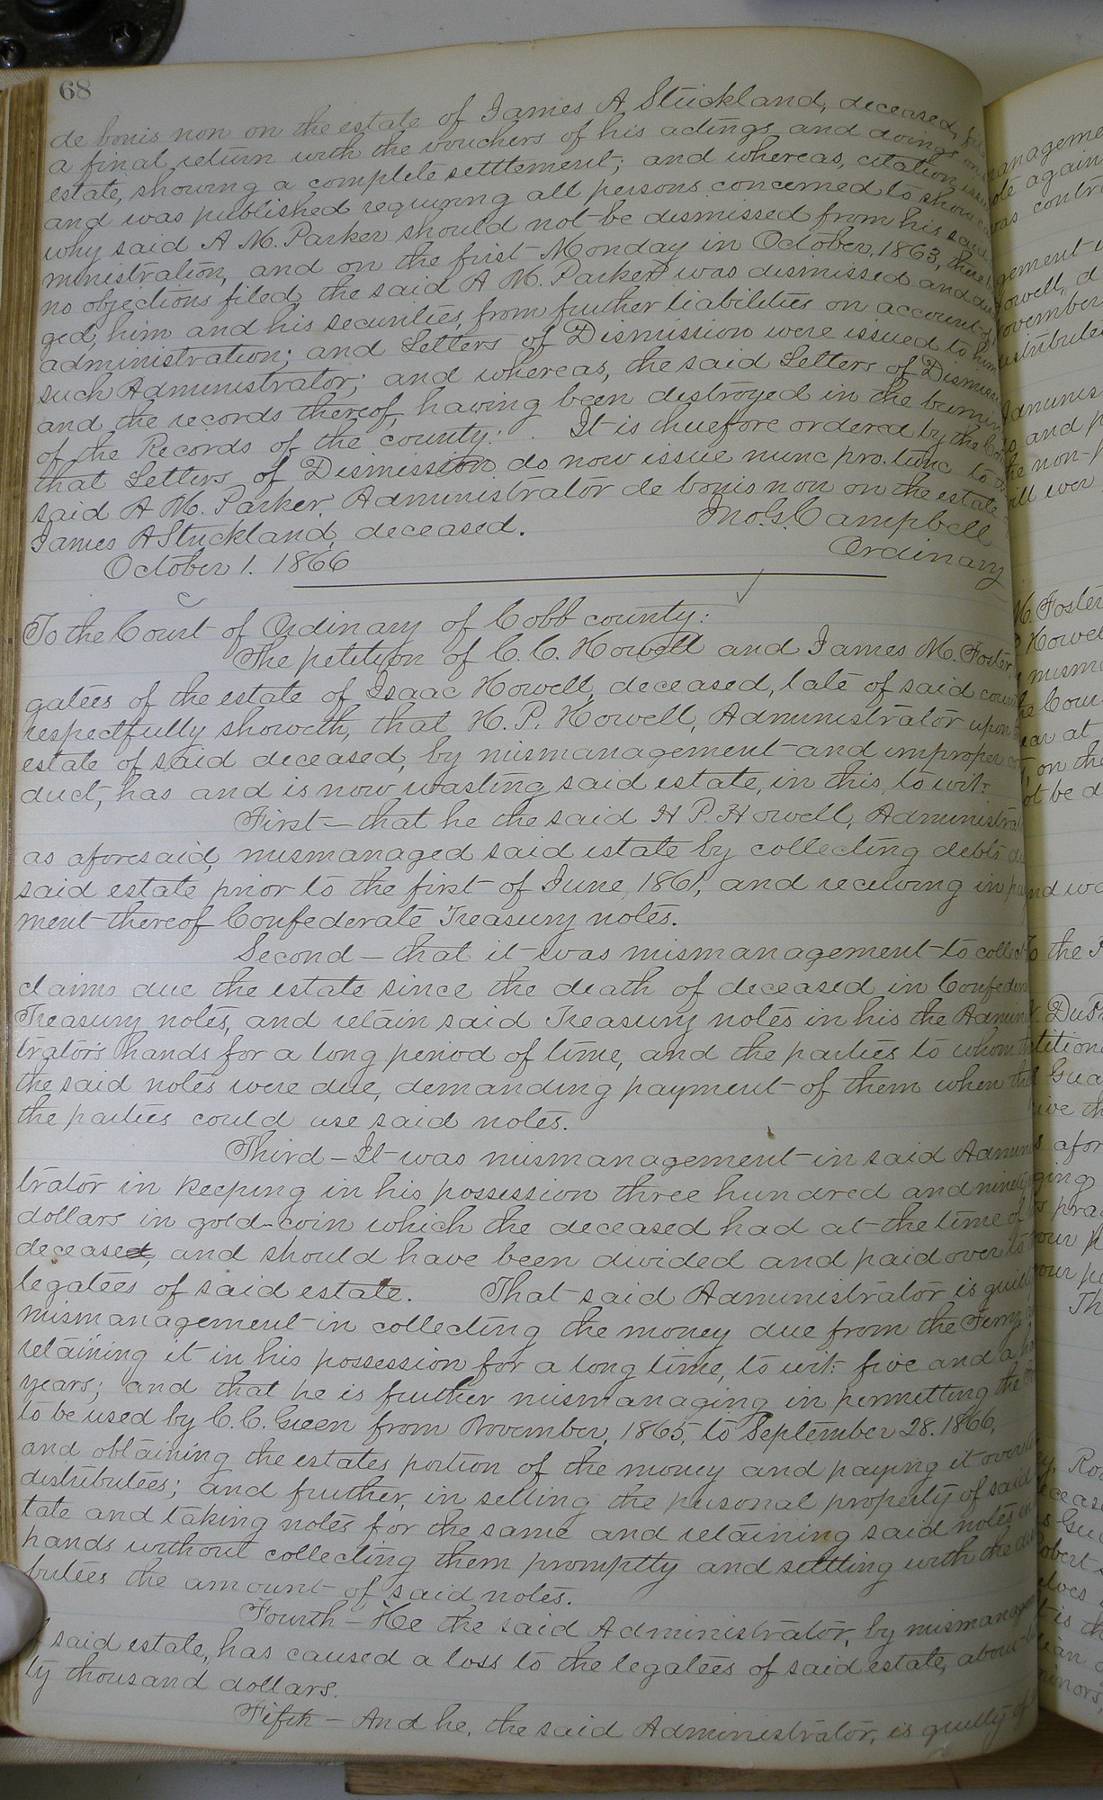 68
de bonis non on the estate of James A Strickland, deceased,
a final return with the vouchers of his actings and doings on
estate, showing a complete settlement; and whereas, citation
and was published requiring all persons concerned to show
why said A M. Parker should not be dismissed from his said
ministration, and on the first Monday in October, 1863, there
no objections filed, the said A M. Parker was dismissed and
ged, him and his securities, from further liabilities on account
administration; and Letters of Dismission were issued to him
such Administrator; and whereas, the said Letters of Dismiss
and the records thereof, having been destroyed in the burnin
of the Records of the county: It is therefore ordered by the Co
that Letters of Dismission do now issue nunc pro. tunc to
said A M. Parker, Administrator de bonis non on the estate
James A Strickland, deceased. Jno. G. Campbell
October 1. 1866 Ordinary
To the Court of Ordinary of Cobb county:
The petition of C. C. Howell and James M. Foster,
gatees of the estate of Isaac Howell, deceased, late of said coun
respectfully showeth, that H. P. Howell, Administrator upon
estate of said deceased, by mismanagement and improper
duct, has and is now wasting said estate, in this, to wit:
First — that he the said H P. Howell, Administrat
as aforesaid, mismanaged said estate by collecting debts
said estate prior to the first of June, 1861, and receiving in
ment thereof Confederate Treasury notes.
Second — that it was mismanagement to collect
claims due the estate since the death of deceased in Confeder
Treasury notes, and retain said Treasury notes in his the Admin
trator's hands for a long period of time, and the parties to whom
the said notes were due, demanding payment of them when
the parties could use said notes.
Third — It was mismanagement in said Admin
trator in keeping in his possession three hundred and ninety
dollars in gold-coin which the deceased had at the time of
decease, and should have been divided and paid over to
legatees of said estate. That said Administrator is guil
mismanagement in collecting the money due from the Ferry
retaining it in his possession for a long time, to wit: five and a
years; and that he is further mismanaging in permitting the
to be used by C. C. Green from November, 1865, to September 28. 1866,
and obtaining the estates portion of the money and paying it over
distributees; and further, in selling the personal property of said
tate and taking notes for the same and retaining said notes in
hands without collecting them promptly and settling with the
butees the amount of said notes.
Fourth — He the said Administrator, by mismanage
said estate, has caused a loss to the legatees of said estate, about
ty thousand dollars.
Fifth — And he, the said Administrator, is guilty of